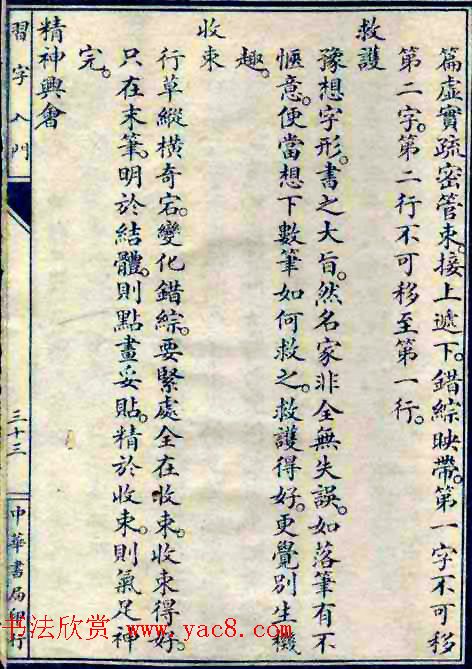 篇虛實疏密管束。接上遞下。錯綜映帶。第一字不可移
第二字。第二行不可移至第一行。
救護
豫想字形。書之大旨。然名家非全無失誤。如落筆有不
愜意。便當想下數筆如何救之。救護得好。更覺別生機
趣。
收束
行草縱橫奇宕。變化錯綜。要緊處全在收束。收束得好。
只在末筆。明於結體。則點畫妥貼。精於收束。則氣足神
完。
精神興會
習字入門
三十三
中華書局印行
书法欣赏 www.yac8.com